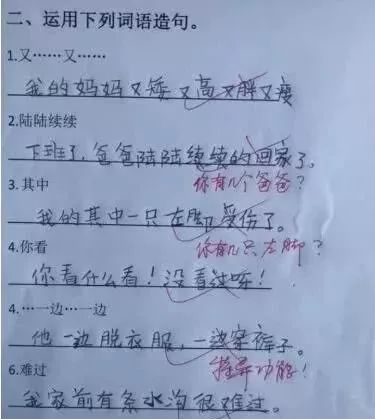 二、运用下列词语造句。
1.又……又……
我的妈妈又矮又高又胖又瘦
2.陆陆续续
下班了,爸爸陆陆续续的回家了。
3.其中
你有几个爸爸?
我的其中一只左脚受伤了。
4.你看
你有几只左脚?
你看什么看!没看过呀!
4.……一边……一边
他一边脱衣服,一边穿裤子。
6.难过
特异功能!
我家前有条水沟很难过。